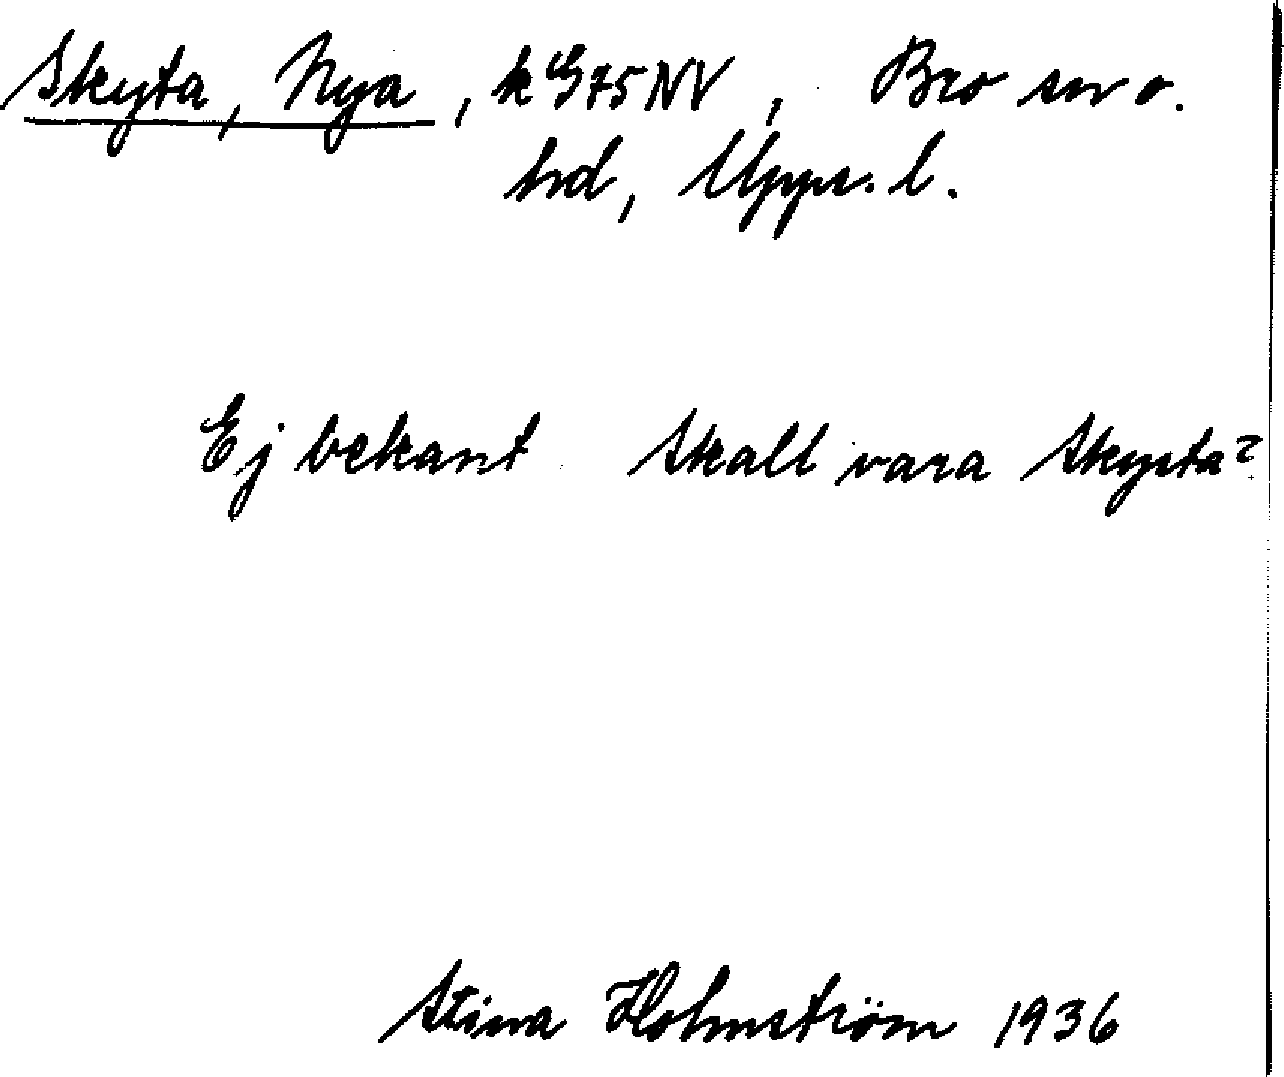 Skyta, Nya, k G75NV, Bro sn o.
hd, Upps. l.
Ej bekant Skall vara Skysta?
Stina Holmström 1936